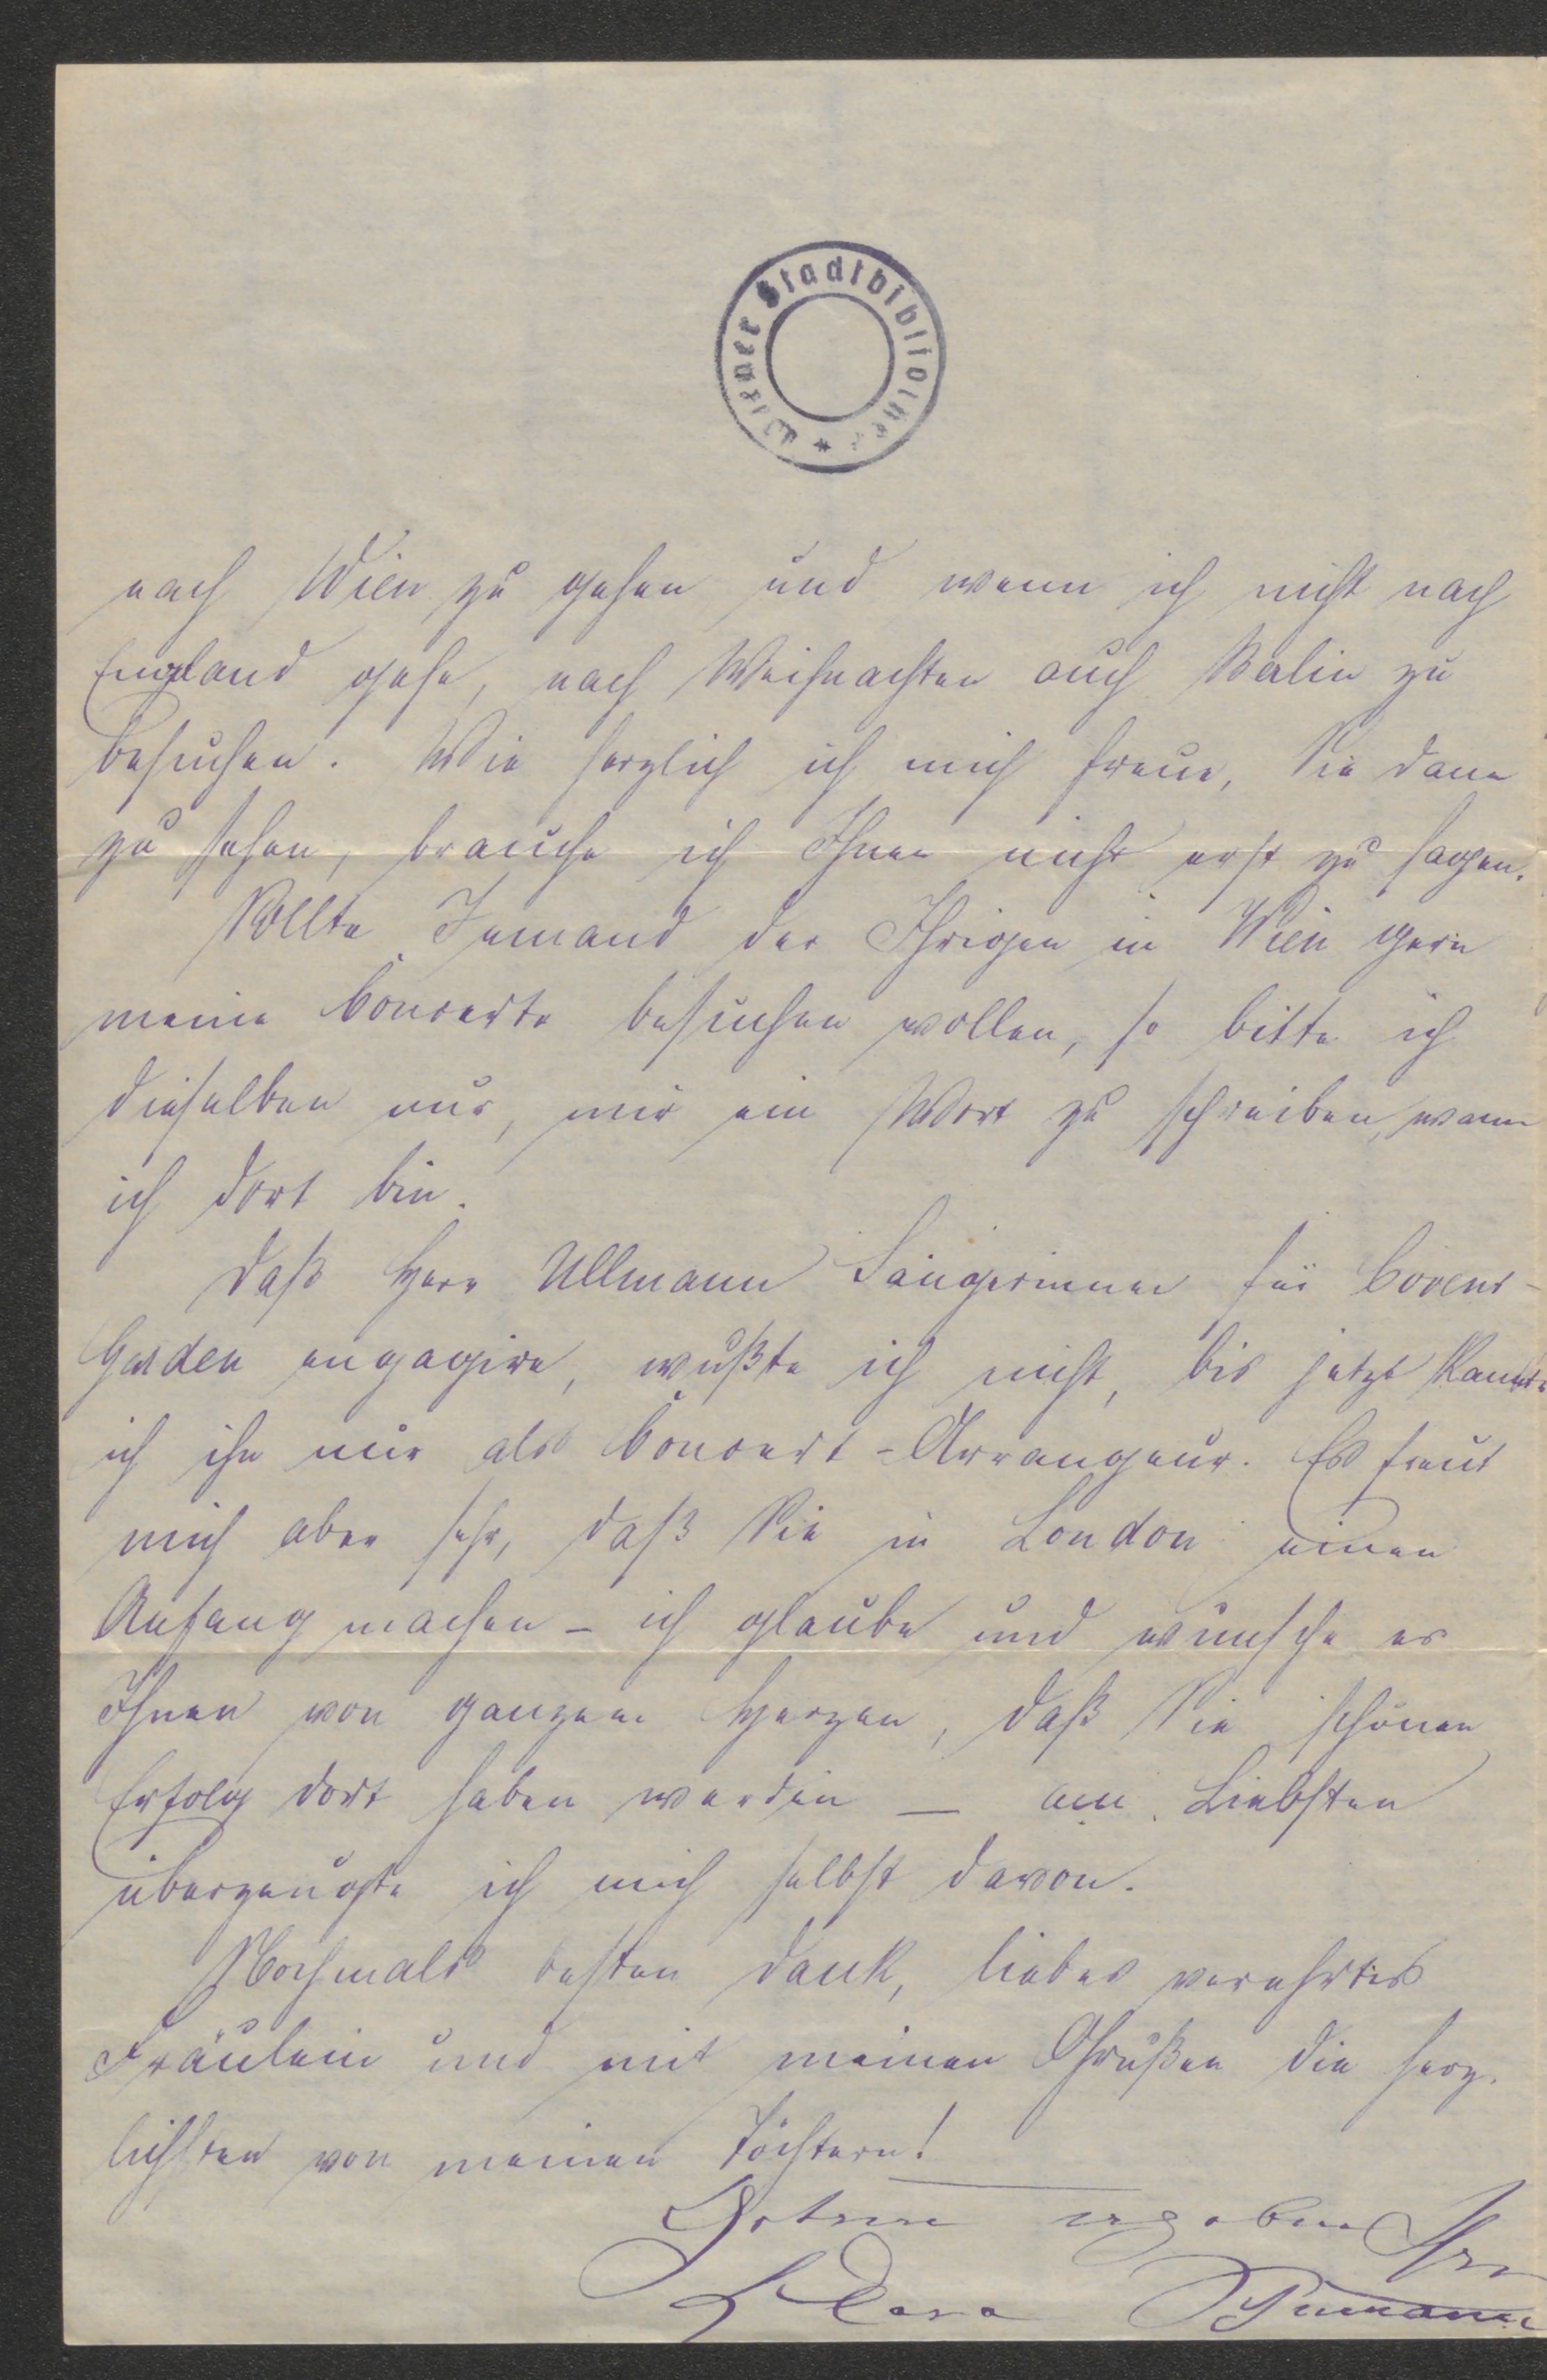 Wiener Stadtbibliothek *
nach Wien zu gehen und wenn ich nicht nach
England gehe, nach Weihnachten auch Berlin zu
besuchen. Wie herzlich ich mich freue, Sie dann
zu sehen, brauche ich Ihnen nicht erst zu sagen.
Sollte Jemand der Ihrigen in Wien gern
meine Concerte besuchen wollen, so bitte ich
dieselben nur, mir ein Wort zu schreiben, wenn
ich dort bin.
Daß Herr Ullmann Sängerinnen für Covent-
Garden engagire, wußte ich nicht, bis jetzt kannte
ich ihn nur als Concert-Arrangeur. Es freut
mich aber sehr, daß Sie in London einen
Anfang machen – ich glaube und wünsche es
Ihnen von ganzem Herzen, daß Sie schönen
Erfolg dort haben werden — am Liebsten
überzeugte ich mich selbst davon.
Nochmals besten Dank, liebes verehrtes
Fräulein und mit meinen Grüßen die herz-
lichsten von meinen Töchtern!
Ihre
Clara Schumann